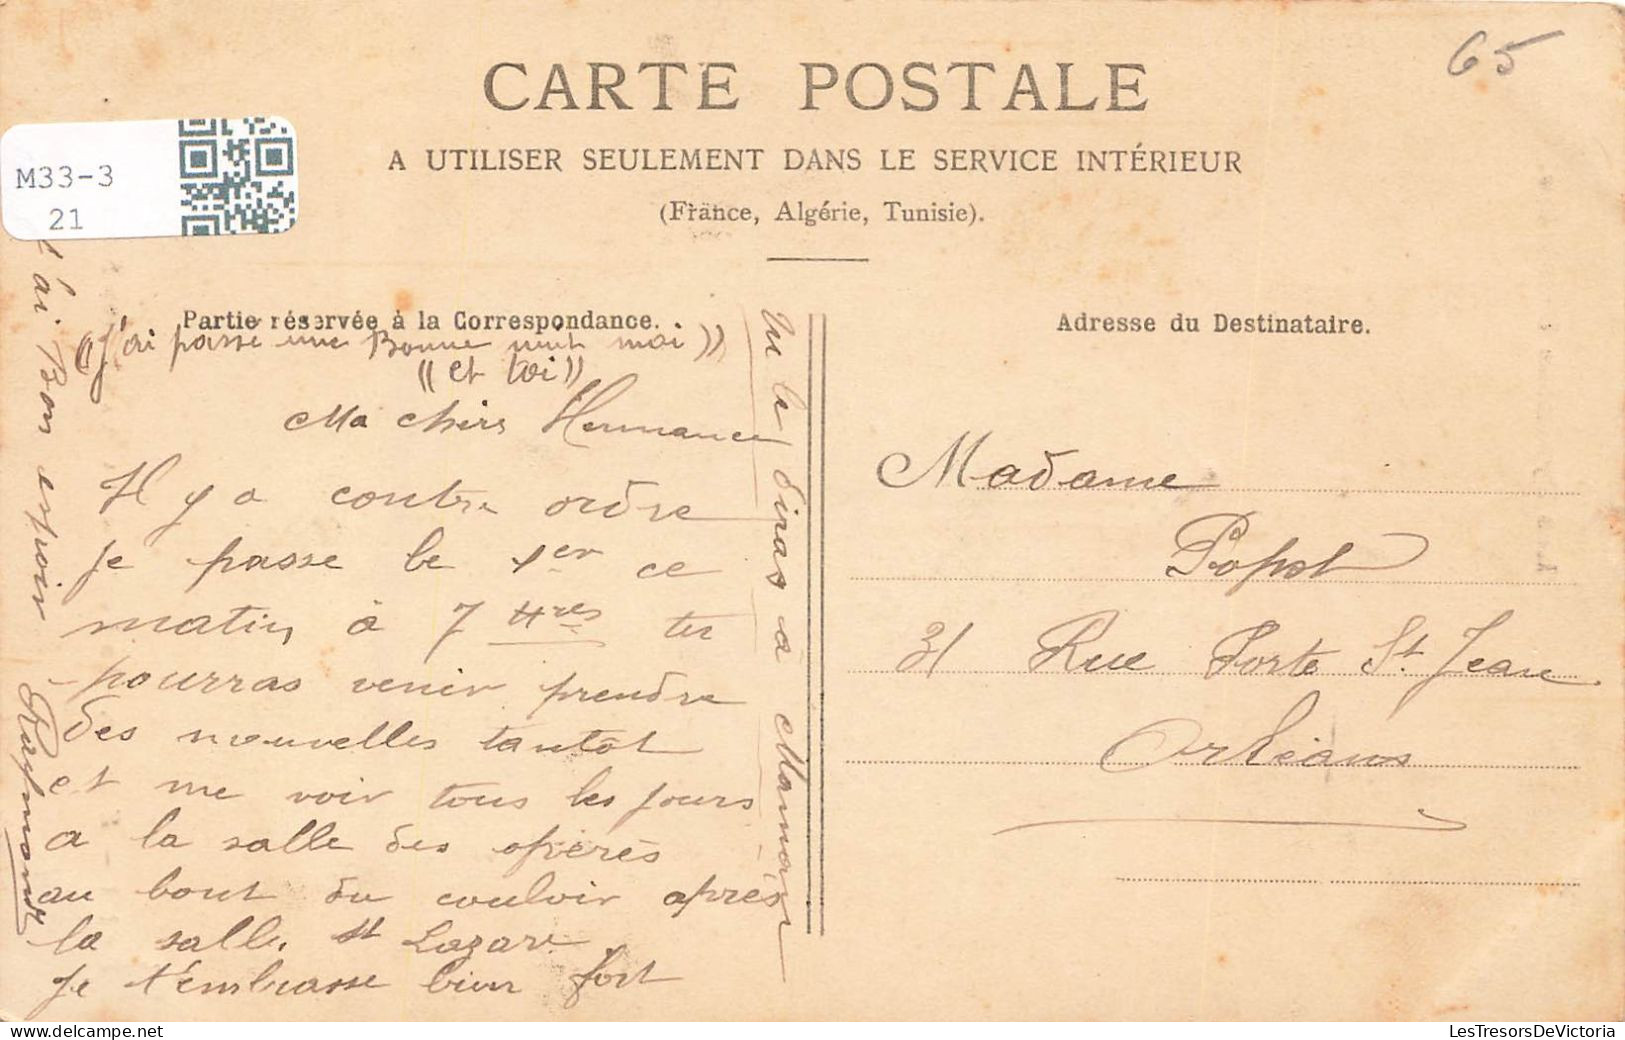 CARTE POSTALE
65
A UTILISER SEULEMENT DANS LE SERVICE INTÉRIEUR
(France, Algérie, Tunisie).
M33-3
21
Partie réservée à la Correspondance.
((j'ai passé une Bonne nuit moi))
((et toi))
Ma chère Hermance
Il y a contre ordre
je passe le 1er ce
matin à 7 Hres tu
pourras venir prendre
des nouvelles tantôt
et me voir tous les jours
a la salle des opérés
au bout du couloir après
la salle St Lazare
je t'embrasse bien fort
j'ai Bon espoir Raymond
tu le diras a Maman
Adresse du Destinataire.
Madame
Popst
31 Rue Porte St. Jean
Orléans
LesTresorsDeVictoria